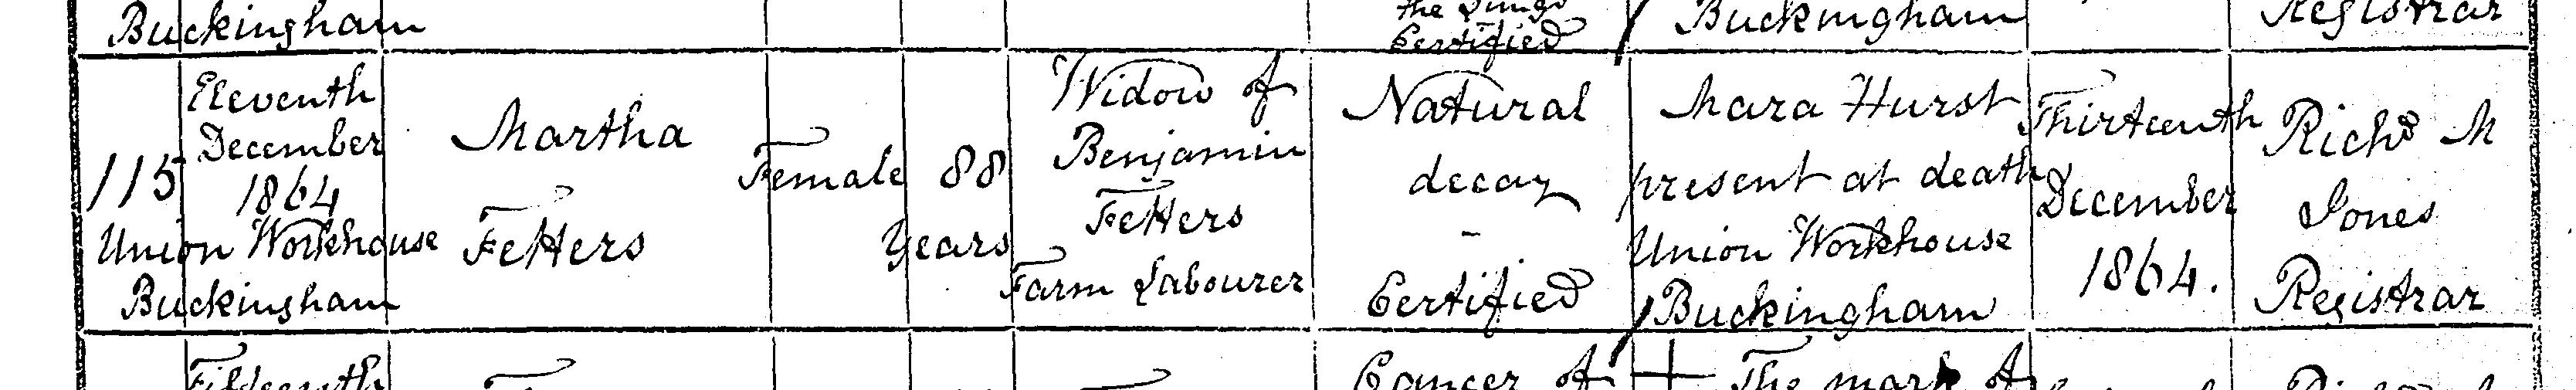 Buckingham
the Lungs
Certified
Buckingham
Registrar
115
Eleventh
December
1864
Union Workhouse
Buckingham
Martha
Fetters
Female
88
Years
Widow of
Benjamin
Fetters
Farm Labourer
Natural
decay
-
Certified
Mara Hurst
present at death
Union Workhouse
Buckingham
Thirteenth
December
1864.
Richd M
Jones
Registrar
Fifteenth
Cancer of
The mark of